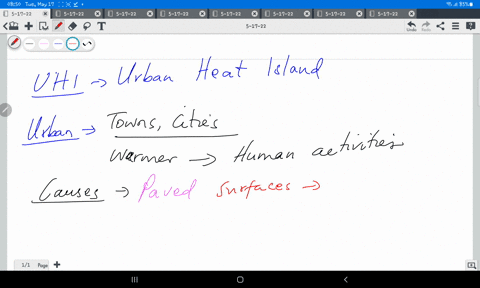 08:50 Tue, May 17
85%
5-17-22 5-17-22 5-17-22 5-17-22 5-17-22 5-17-22 5-17-22 5-17-22
5-17-22
Undo Redo
UHI → Urban Heat Island
Urban → Towns, Cities
Warmer → Human activities
Causes → Paved surfaces →
1/1 Page